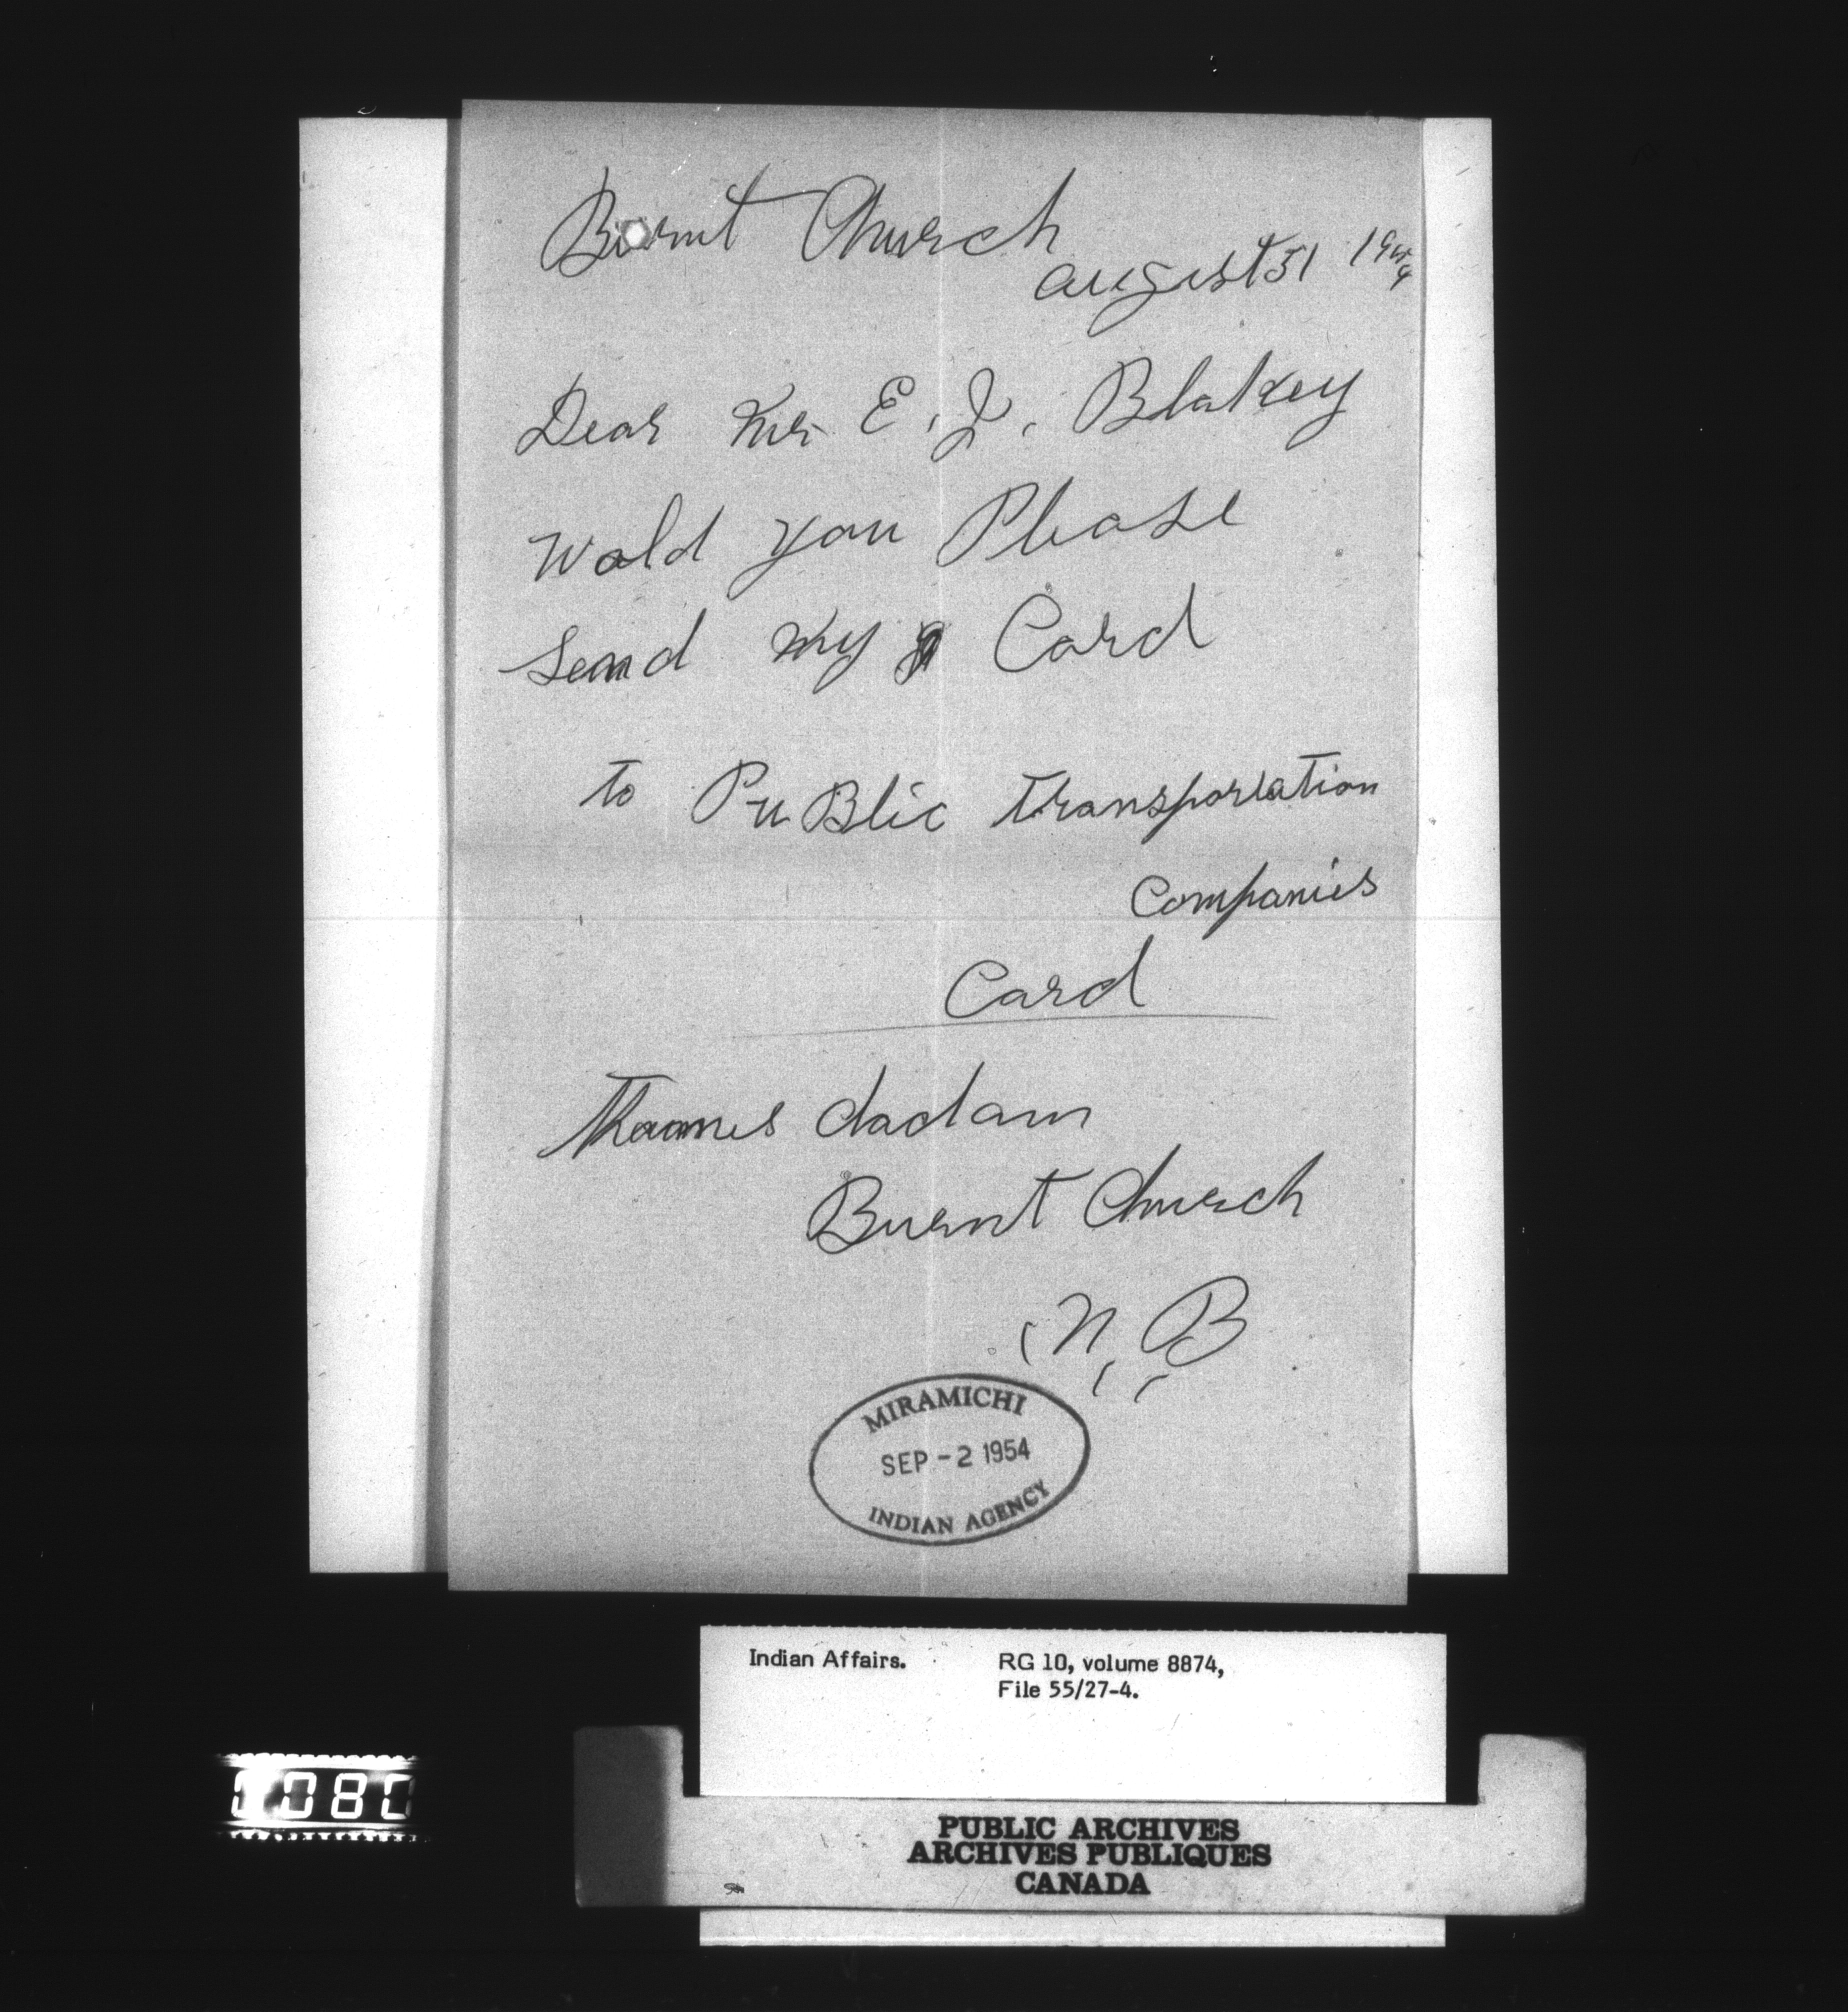 Burnt Church
august 31 1954
Dear Mr. E. J. Blakey
Wold you Please
send my Card
to PuBlic transportation
Companies
Card
dadam
Burnt Church
N, B
MIRAMICHI
SEP - 2 1954
INDIAN AGENCY
Indian Affairs. RG 10, volume 8874,
File 55/27-4.
080
PUBLIC ARCHIVES
ARCHIVES PUBLIQUES
CANADA